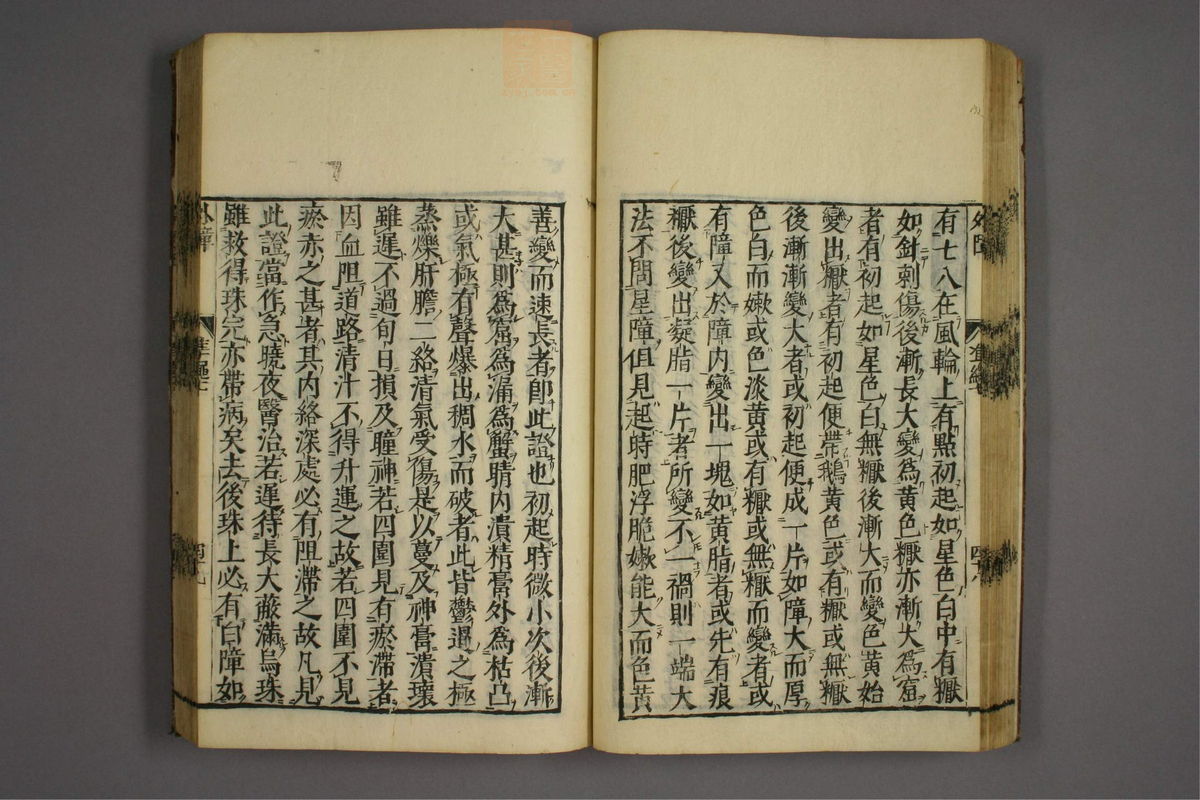 有七八在風輪上有點初起如星色白中有𪍿
如針刺傷後漸長大變為黃色𪍿亦漸大為窟
者有初起如星色白無𪍿後漸大而變色黃始
變出𪍿者有初起便帶鵝黃色或有𪍿或無𪍿
後漸漸變大者或初起便成一片如障大而厚
色白而嫰或色淡黃或有𪍿或無𪍿而變者或
有障又於障內變出一塊如黃脂者或先有痕
𪍿後變出凝脂一片者所變不一禍則一端大
法不問星障但見起時肥浮脆嫰能大而色黃
善變而速長者即此證也初起時微小次後漸
大甚則為窟為漏為蟹睛內潰精膏外為枯凸
或氣極有聲爆出稠水而破者此皆鬱遏之極
蒸爍肝膽二絡清氣受傷是以蔓及神膏潰壞
雖遲不過旬日損及瞳神若四圍見有瘀滯者
因血阻道路清汁不得升運之故若四圍不見
瘀赤之甚者其內絡深處必有阻滯之故凡見
此證當作急曉夜醫治若遲待長大蔽滿烏珠
雖救得珠完亦帶病矣去後珠上必有白障如
外障
四十九